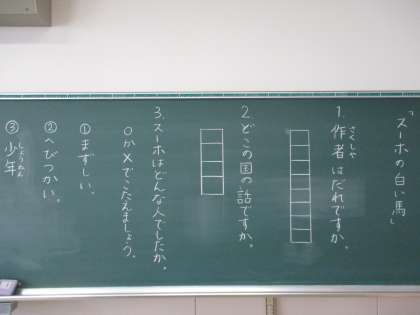 「スーホの白い馬」
1. 作者はだれですか。
さくしゃ
2. どこの国の話ですか。
3. スーホはどんな人でしたか。
○か×でこたえましょう。
① まずしい。
② へびつかい。
③ 少年
しょうねん